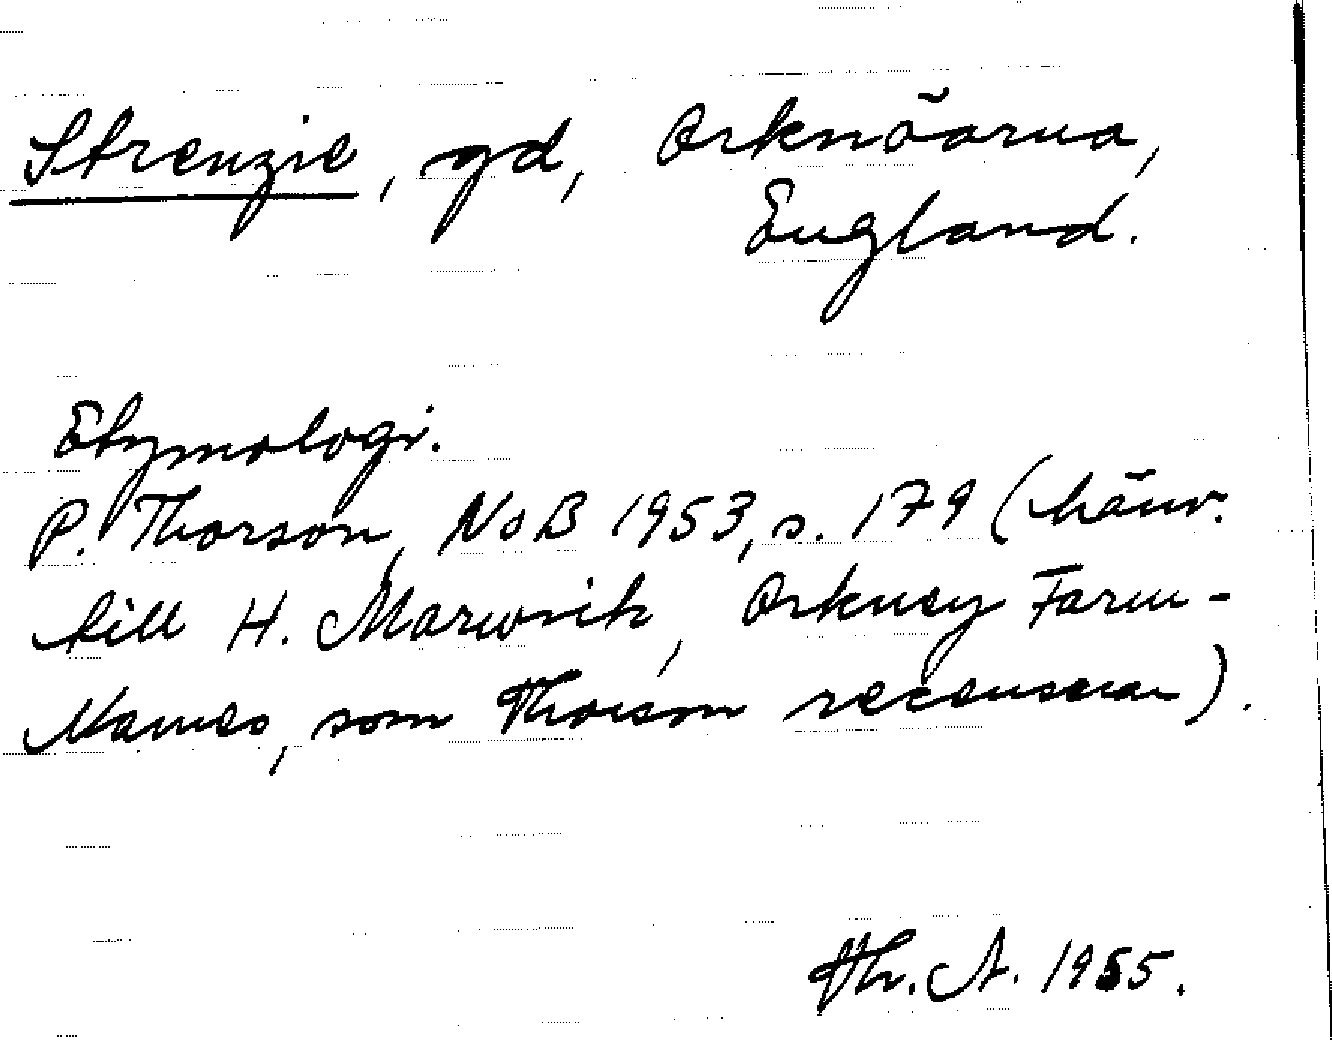 Strenzie, gd, Orknöarna,
England.
Etymologi.
P. Thorson, NoB 1953, s. 179 (hänv.
till H. Marwick, Orkney Farm-
Names, som Thorson recenserar).
Th. A. 1955.